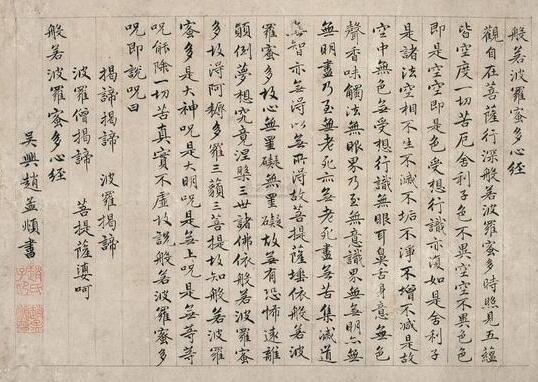 般若波羅蜜多心經
觀自在菩薩行深般若波羅蜜多時照見五蘊
皆空度一切苦厄舍利子色不異空空不異色色
即是空空即是色受想行識亦復如是舍利子
是諸法空相不生不滅不垢不淨不增不減是故
空中無色無受想行識無眼耳鼻舌身意無色
聲香味觸法無眼界乃至無意識界無無明亦無
無明盡乃至無老死亦無老死盡無苦集滅道
無智亦無得以無所得故菩提薩埵依般若波
羅蜜多故心無罣礙無罣礙故無有恐怖遠離
顛倒夢想究竟涅槃三世諸佛依般若波羅蜜
多故得阿耨多羅三藐三菩提故知般若波羅
蜜多是大神呪是大明呪是無上呪是無等等
呪能除一切苦真實不虛故說般若波羅蜜多
呪即說呪曰
揭諦揭諦 波羅揭諦
波羅僧揭諦 菩提薩婆呵
般若波羅蜜多心經
吳興趙孟頫書